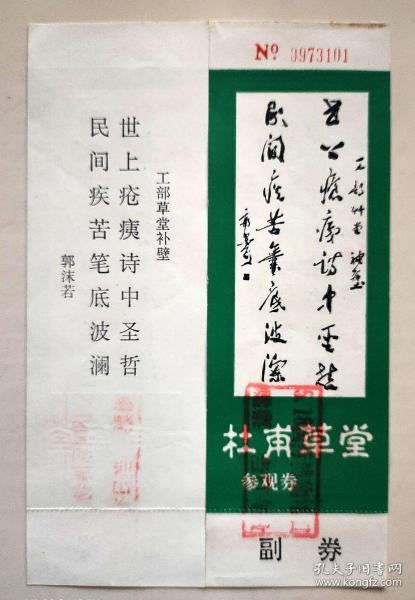 工部草堂补壁
世上疮痍诗中圣哲
民间疾苦笔底波澜
郭沫若
Nº 0973101
工部草堂补壁
世上疮痍诗中圣哲
民间疾苦笔底波澜
杜甫草堂
参观券
副 券
孔夫子旧书网